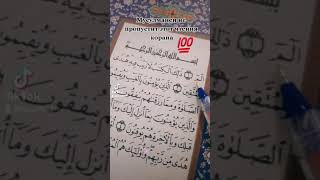 Мусульмани не
пропустит это чтения
корана
💯
بسم الله الرحمن الرحيم
الم ذلك الكتب لا ريب فيه هدى
للمتقين الذين يؤمنون بالغيب ويقيمون
الصلوة ومما رزقنهم ينفقون
والذين يؤمنون بما أنزل إليك وما أنزل من
قبلك وبالآخرة هم يوقنون
هدى من ربهم وأولئك هم
TikTok